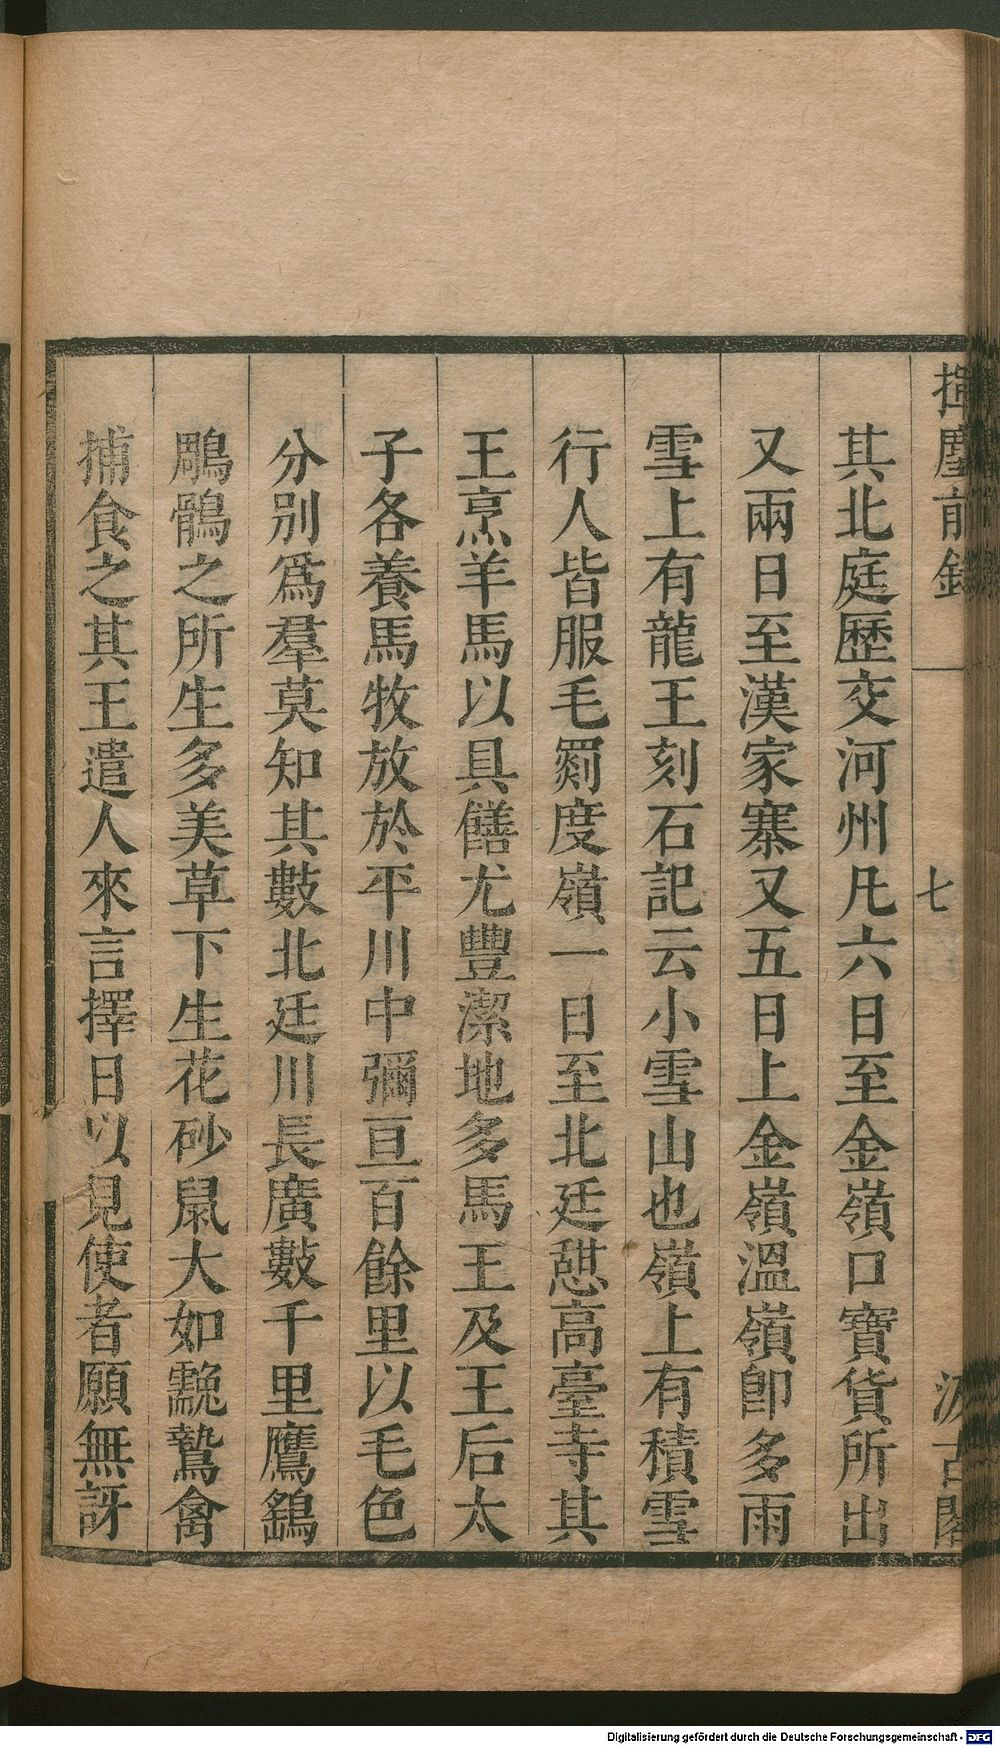 揮麈前錄
七
汲古閣
其北庭歷交河州凡六日至金嶺口寶貨所出
又兩日至漢家寨又五日上金嶺溫嶺卽多雨
雪上有龍王刻石記云小雪山也嶺上有積雪
行人皆服毛罽度嶺一日至北廷憇高臺寺其
王烹羊馬以具饍尤豐潔地多馬王及王后太
子各養馬牧放於平川中彌亘百餘里以毛色
分別爲羣莫知其數北廷川長廣數千里鷹鷂
鵰鶻之所生多美草下生花砂鼠大如鷙禽
捕食之其王遣人來言擇日以見使者願無訝
Digitalisierung gefördert durch die Deutsche Forschungsgemeinschaft - DFG